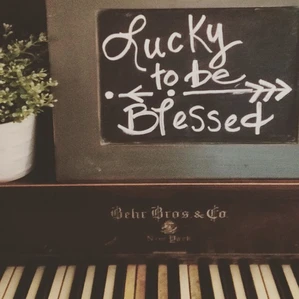 Lucky
to be
Blessed
Behr Bros & Co.
New York